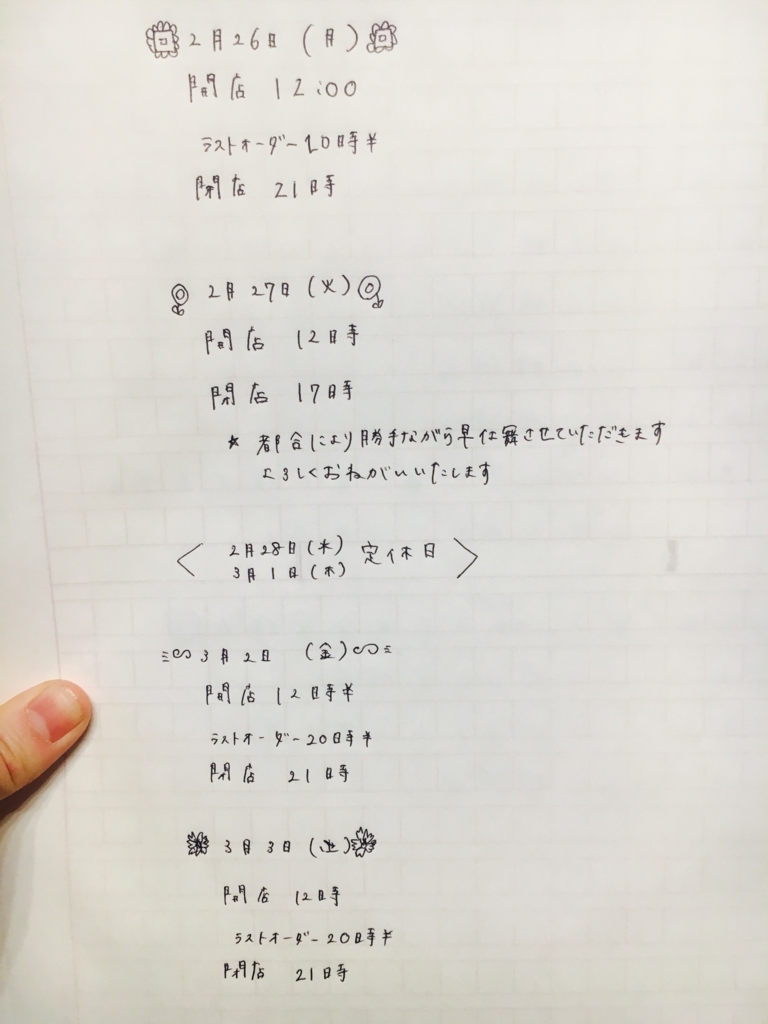 2月26日 (月)
開店 12:00
ラストオーダー 20時半
閉店 21時
2月27日 (火)
開店 12時
閉店 17時
★ 都合により勝手ながら早仕舞させていただきます
よろしくおねがいいたします
〈 2月28日(水) 定休日 〉
3月1日(木)
3月2日 (金)
開店 12時半
ラストオーダー 20時半
閉店 21時
3月3日 (土)
開店 12時
ラストオーダー 20時半
閉店 21時